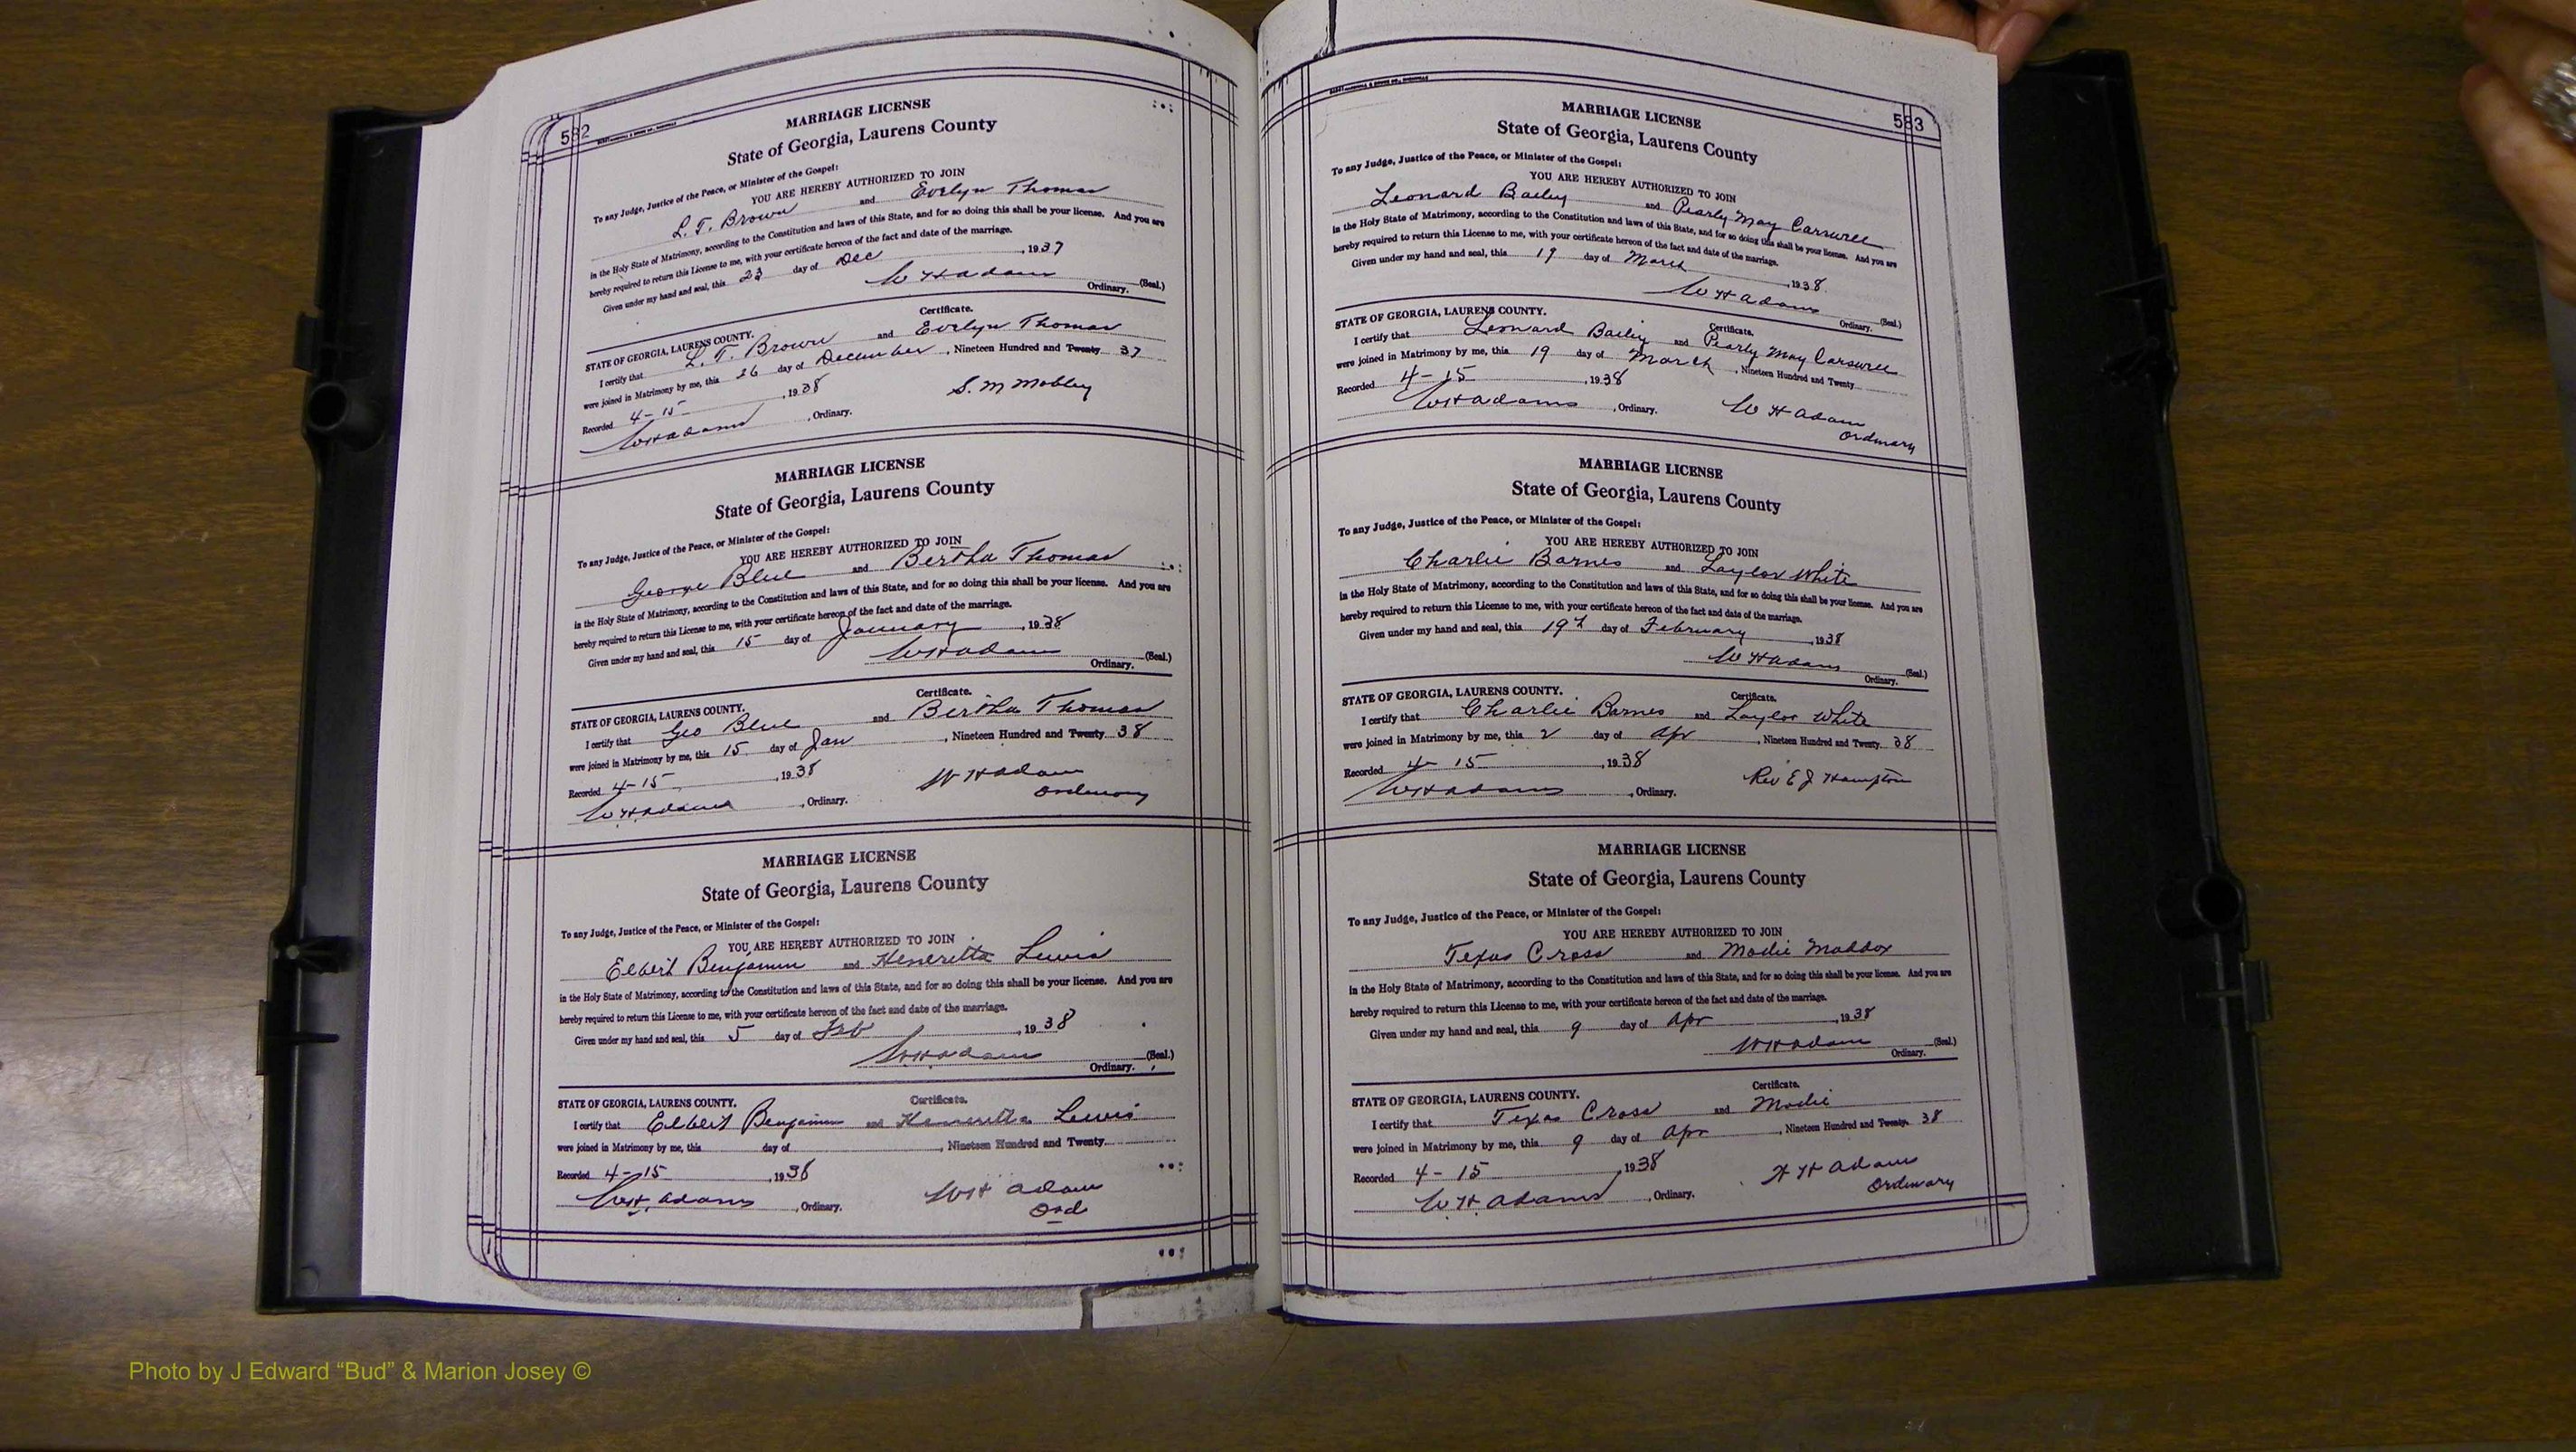 582
MARRIAGE LICENSE
State of Georgia, Laurens County
To any Judge, Justice of the Peace, or Minister of the Gospel:
YOU ARE HEREBY AUTHORIZED TO JOIN
L. T. Brown and Evelyn Thomas
in the Holy State of Matrimony, according to the Constitution and laws of this State, and for so doing this shall be your license. And you are
hereby required to return this License to me, with your certificate hereon of the fact and date of the marriage.
Given under my hand and seal, this 23 day of Dec, 1937
W H Adams (Seal.)
Ordinary.
Certificate.
STATE OF GEORGIA, LAURENS COUNTY.
I certify that L. T. Brown and Evelyn Thomas
were joined in Matrimony by me, this 26 day of December, Nineteen Hundred and Twenty 37
Recorded 4-15, 1938
S. M Mobley
W H Adams, Ordinary.
MARRIAGE LICENSE
State of Georgia, Laurens County
To any Judge, Justice of the Peace, or Minister of the Gospel:
YOU ARE HEREBY AUTHORIZED TO JOIN
George Blue and Bertha Thomas
in the Holy State of Matrimony, according to the Constitution and laws of this State, and for so doing this shall be your license. And you are
hereby required to return this License to me, with your certificate hereon of the fact and date of the marriage.
Given under my hand and seal, this 15 day of January, 1938
W H Adams (Seal.)
Ordinary.
Certificate.
STATE OF GEORGIA, LAURENS COUNTY.
I certify that Geo Blue and Bertha Thomas
were joined in Matrimony by me, this 15 day of Jan, Nineteen Hundred and Twenty 38
Recorded 4-15, 1938
W H Adams
Ordinary
W H Adams, Ordinary.
MARRIAGE LICENSE
State of Georgia, Laurens County
To any Judge, Justice of the Peace, or Minister of the Gospel:
YOU ARE HEREBY AUTHORIZED TO JOIN
Elbert Benjamin and Henrietta Lewis
in the Holy State of Matrimony, according to the Constitution and laws of this State, and for so doing this shall be your license. And you are
hereby required to return this License to me, with your certificate hereon of the fact and date of the marriage.
Given under my hand and seal, this 5 day of Feb, 1938
W H Adams (Seal.)
Ordinary.
Certificate.
STATE OF GEORGIA, LAURENS COUNTY.
I certify that Elbert Benjamin and Henrietta Lewis
were joined in Matrimony by me, this day of , Nineteen Hundred and Twenty
Recorded 4-15, 1938
W H Adams
Ord
W H. Adams, Ordinary.
583
MARRIAGE LICENSE
State of Georgia, Laurens County
To any Judge, Justice of the Peace, or Minister of the Gospel:
YOU ARE HEREBY AUTHORIZED TO JOIN
Leonard Bailey and Pearly May Carswell
in the Holy State of Matrimony, according to the Constitution and laws of this State, and for so doing this shall be your license. And you are
hereby required to return this License to me, with your certificate hereon of the fact and date of the marriage.
Given under my hand and seal, this 19 day of March, 1938.
W H Adams (Seal.)
Ordinary.
Certificate.
STATE OF GEORGIA, LAURENS COUNTY.
I certify that Leonard Bailey and Pearly May Carswell
were joined in Matrimony by me, this 19 day of March, Nineteen Hundred and Twenty
Recorded 4-15, 1938
W H Adams, Ordinary.
W H Adams
Ordinary
MARRIAGE LICENSE
State of Georgia, Laurens County
To any Judge, Justice of the Peace, or Minister of the Gospel:
YOU ARE HEREBY AUTHORIZED TO JOIN
Charlie Barnes and Laylor White
in the Holy State of Matrimony, according to the Constitution and laws of this State, and for so doing this shall be your license. And you are
hereby required to return this License to me, with your certificate hereon of the fact and date of the marriage.
Given under my hand and seal, this 19th day of February, 1938
W H Adams (Seal.)
Ordinary.
Certificate.
STATE OF GEORGIA, LAURENS COUNTY.
I certify that Charlie Barnes and Laylor White
were joined in Matrimony by me, this 2 day of Apr, Nineteen Hundred and Twenty 38
Recorded 4-15, 1938
Rev E J Hampton
W H Adams, Ordinary.
MARRIAGE LICENSE
State of Georgia, Laurens County
To any Judge, Justice of the Peace, or Minister of the Gospel:
YOU ARE HEREBY AUTHORIZED TO JOIN
Texas Cross and Modie Maddox
in the Holy State of Matrimony, according to the Constitution and laws of this State, and for so doing this shall be your license. And you are
hereby required to return this License to me, with your certificate hereon of the fact and date of the marriage.
Given under my hand and seal, this 9 day of Apr, 1938
W H Adams (Seal.)
Ordinary.
Certificate.
STATE OF GEORGIA, LAURENS COUNTY.
I certify that Texas Cross and Modie
were joined in Matrimony by me, this 9 day of Apr, Nineteen Hundred and Twenty. 38
Recorded 4-15, 1938
W H Adams
Ordinary
W H Adams, Ordinary.
Photo by J Edward “Bud” & Marion Josey ©